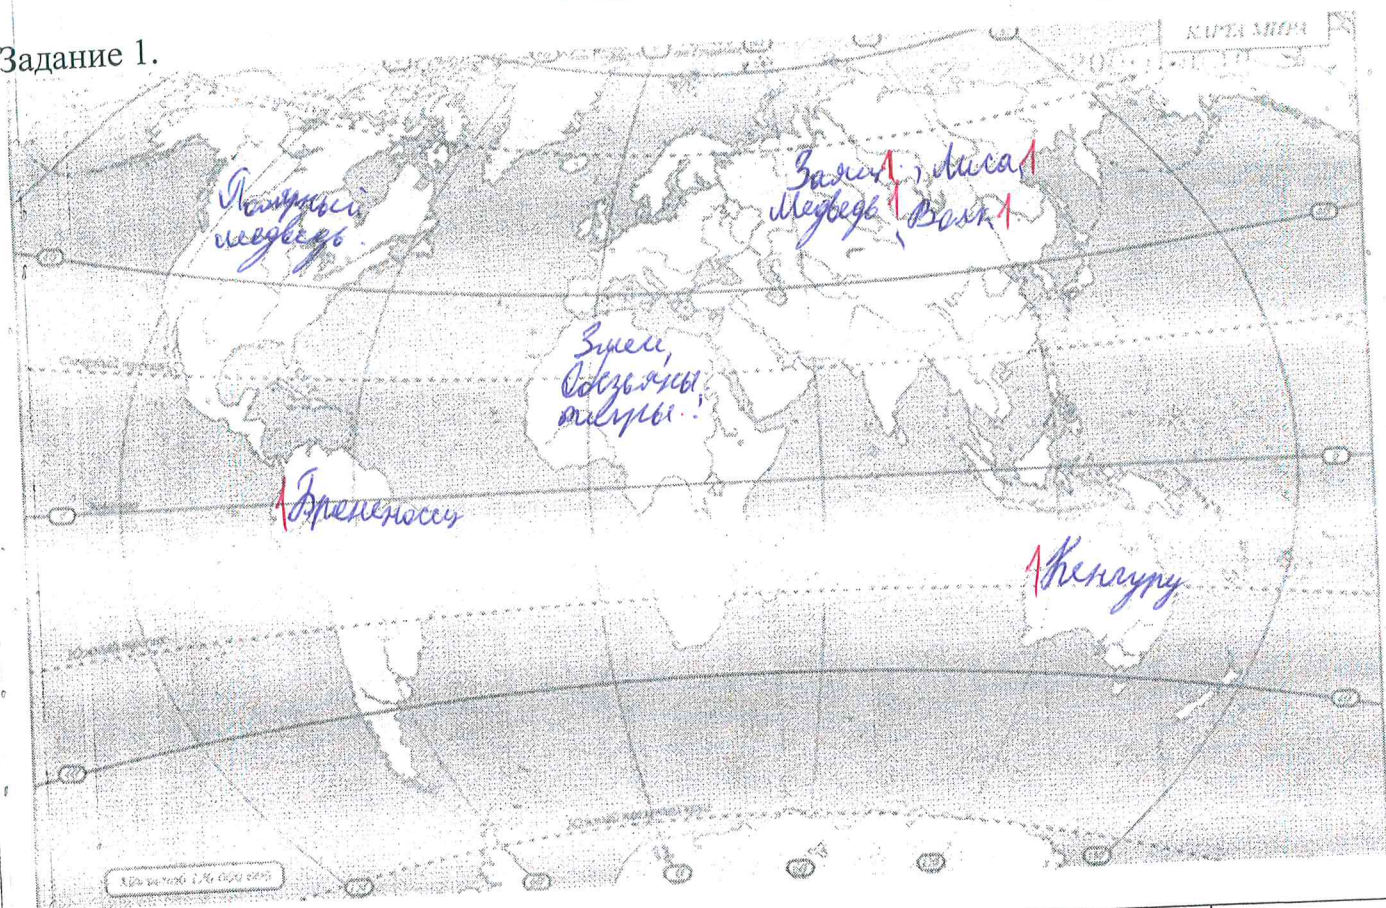 Задание 1.
КАРТА МИРА
Полярный
медведь.
Заяц 1., Лиса, 1
Медведь 1, Волк 1
Змеи,
Обезьяны,
тигры.
1 Броненосец
1 Кенгуру